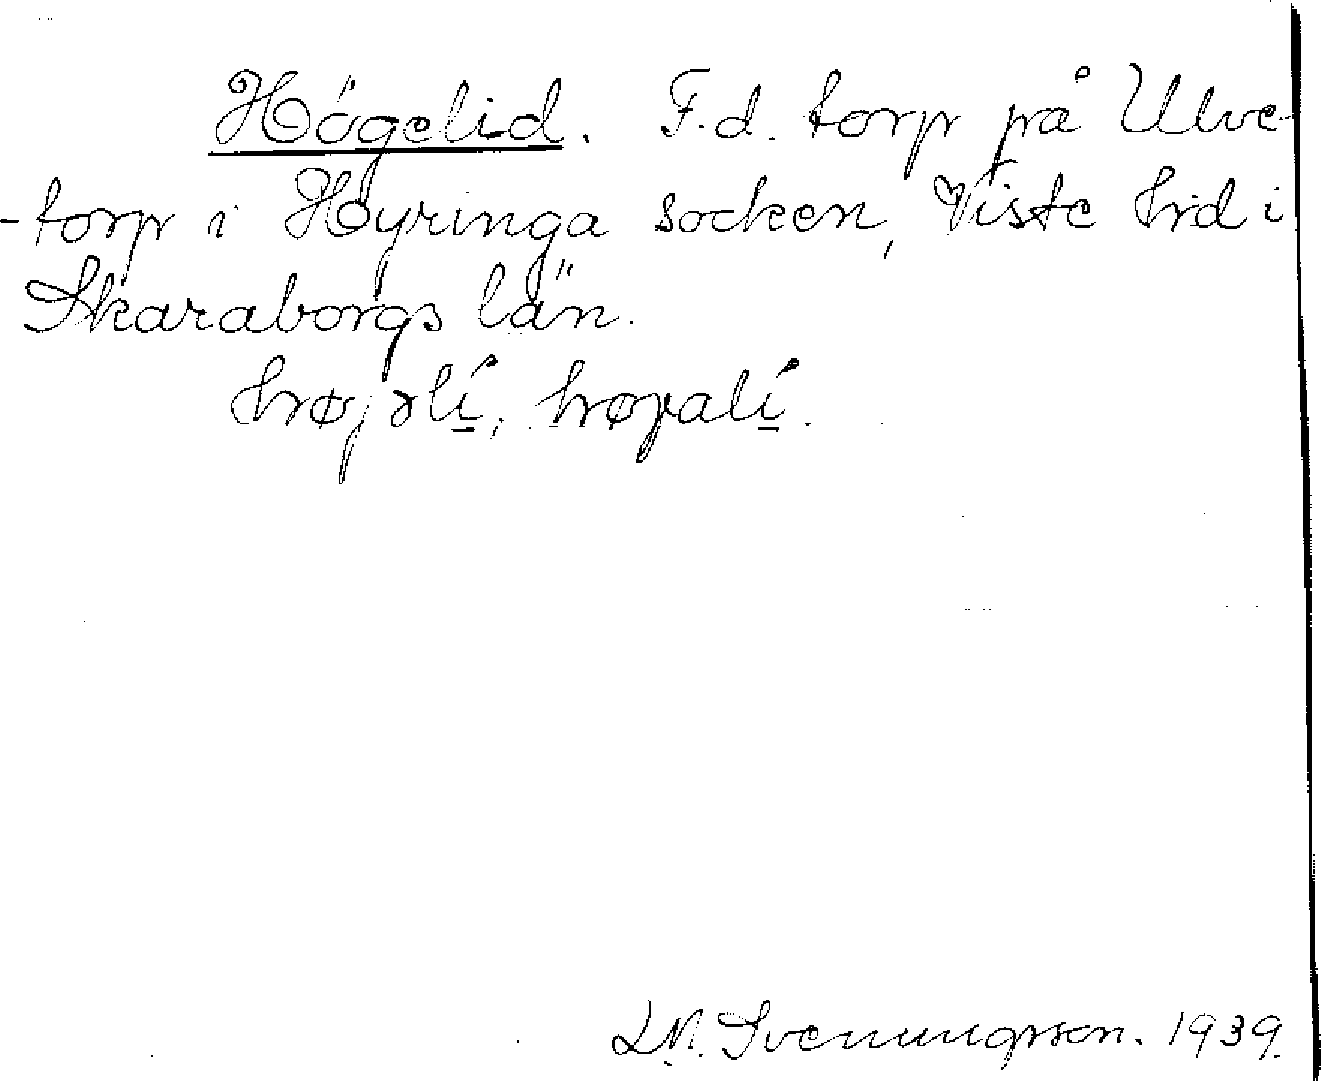 Högelid. F.d. torp på Ulve-
-torp i Hyringa socken, Viste hd i
Skaraborgs län.
højəlí̲, høgalí̲.
L.M. Svenungsson. 1939.